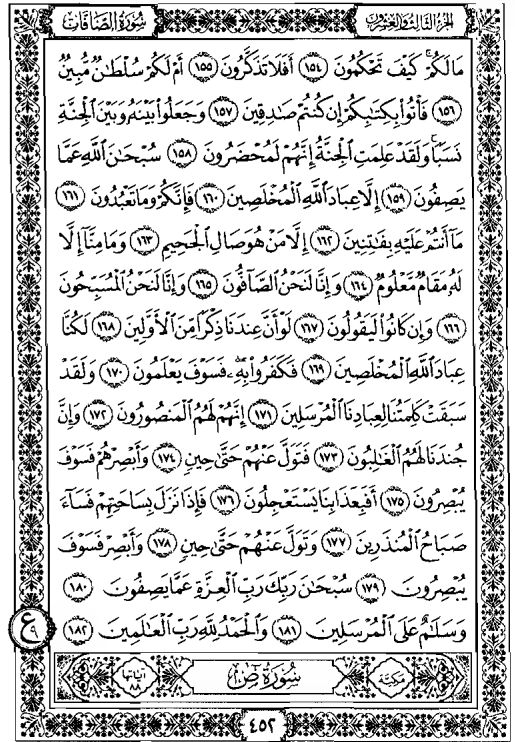 الجزء الثالث والعشرون سورة الصافات
مَا لَكُمْ كَيْفَ تَحْكُمُونَ ١٥٤ أَفَلَا تَذَكَّرُونَ ١٥٥ أَمْ لَكُمْ سُلْطَٰنٌ مُّبِينٌ
١٥٦ فَأْتُوا۟ بِكِتَٰبِكُمْ إِن كُنتُمْ صَٰدِقِينَ ١٥٧ وَجَعَلُوا۟ بَيْنَهُۥ وَبَيْنَ ٱلْجِنَّةِ
نَسَبًا ۚ وَلَقَدْ عَلِمَتِ ٱلْجِنَّةُ إِنَّهُمْ لَمُحْضَرُونَ ١٥٨ سُبْحَٰنَ ٱللَّهِ عَمَّا
يَصِفُونَ ١٥٩ إِلَّا عِبَادَ ٱللَّهِ ٱلْمُخْلَصِينَ ١٦٠ فَإِنَّكُمْ وَمَا تَعْبُدُونَ ١٦١
مَآ أَنتُمْ عَلَيْهِ بِفَٰتِنِينَ ١٦٢ إِلَّا مَنْ هُوَ صَالِ ٱلْجَحِيمِ ١٦٣ وَمَا مِنَّآ إِلَّا
لَهُۥ مَقَامٌ مَّعْلُومٌ ١٦٤ وَإِنَّا لَنَحْنُ ٱلصَّآفُّونَ ١٦٥ وَإِنَّا لَنَحْنُ ٱلْمُسَبِّحُونَ
١٦٦ وَإِن كَانُوا۟ لَيَقُولُونَ ١٦٧ لَوْ أَنَّ عِندَنَا ذِكْرًا مِّنَ ٱلْأَوَّلِينَ ١٦٨ لَكُنَّا
عِبَادَ ٱللَّهِ ٱلْمُخْلَصِينَ ١٦٩ فَكَفَرُوا۟ بِهِۦ ۖ فَسَوْفَ يَعْلَمُونَ ١٧٠ وَلَقَدْ
سَبَقَتْ كَلِمَتُنَا لِعِبَادِنَا ٱلْمُرْسَلِينَ ١٧١ إِنَّهُمْ لَهُمُ ٱلْمَنصُورُونَ ١٧٢ وَإِنَّ
جُندَنَا لَهُمُ ٱلْغَٰلِبُونَ ١٧٣ فَتَوَلَّ عَنْهُمْ حَتَّىٰ حِينٍ ١٧٤ وَأَبْصِرْهُمْ فَسَوْفَ
يُبْصِرُونَ ١٧٥ أَفَبِعَذَابِنَا يَسْتَعْجِلُونَ ١٧٦ فَإِذَا نَزَلَ بِسَاحَتِهِمْ فَسَآءَ
صَبَاحُ ٱلْمُنذَرِينَ ١٧٧ وَتَوَلَّ عَنْهُمْ حَتَّىٰ حِينٍ ١٧٨ وَأَبْصِرْ فَسَوْفَ
يُبْصِرُونَ ١٧٩ سُبْحَٰنَ رَبِّكَ رَبِّ ٱلْعِزَّةِ عَمَّا يَصِفُونَ ١٨٠
وَسَلَٰمٌ عَلَى ٱلْمُرْسَلِينَ ١٨١ وَٱلْحَمْدُ لِلَّهِ رَبِّ ٱلْعَٰلَمِينَ ١٨٢
ع ٩
مكية سورة ص آياتها ٨٨
٤٥٢